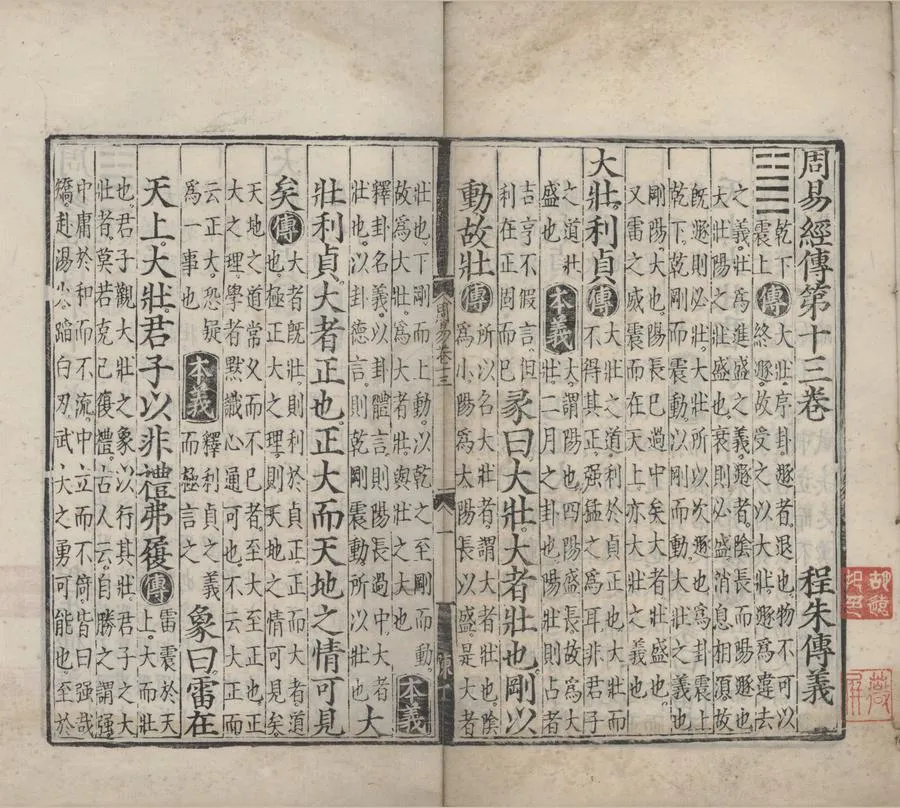 周易經傳第十三卷 程朱傳義
乾下
震上
傳
大壯序卦遯者退也物不可以
終遯故受之以大壯遯為違去
之義壯為進盛之義遯者陰長而陽遯也
大壯陽之壯盛也衰則必盛消息相須故
既遯則必壯大壯所以次遯也為卦震上
乾下乾剛而震動以剛而動大壯之義也
剛陽大也陽長已過中矣大者壯盛也
又雷之威震而在天上亦大壯之義也
大壯利貞傳
大壯之道利於貞正也大壯而
不得其正強猛之為耳非君子
之道壯
盛也
本義
大謂陽也四陽盛長故為大
壯二月之卦也陽壯則占者
吉亨不假言但
利在正固而已
彖曰大壯大者壯也剛以
動故壯傳
所以名大壯者謂大者壯也陰
為小陽為大陽長以盛是大者
周易卷十三
一
壯也下剛而上動以乾之至剛而動
故為大壯為大者壯與壯之大也
本義
釋卦名義以卦體言則陽長過中大者
壯也以卦德言則乾剛震動所以壯
大
壯利貞大者正也正大而天地之情可見
矣傳
大者既壯則利於貞正正而大者道
也極正大之理則天地之情可見矣
天地之道常久而不已者至大至正也正
大之理學者默識心通可也不云大正而
云正大恐疑
為一事也
本義
釋利貞之義
而極言之
象曰雷在
天上大壯君子以非禮弗履傳
雷震於天
上大而壯
也君子觀大壯之象以行其壯君子之大
壯者莫若克己復禮古人云自勝之謂強
中庸於和而不流中立而不倚皆曰強哉
矯赴湯火蹈白刃武夫之勇可能也至於